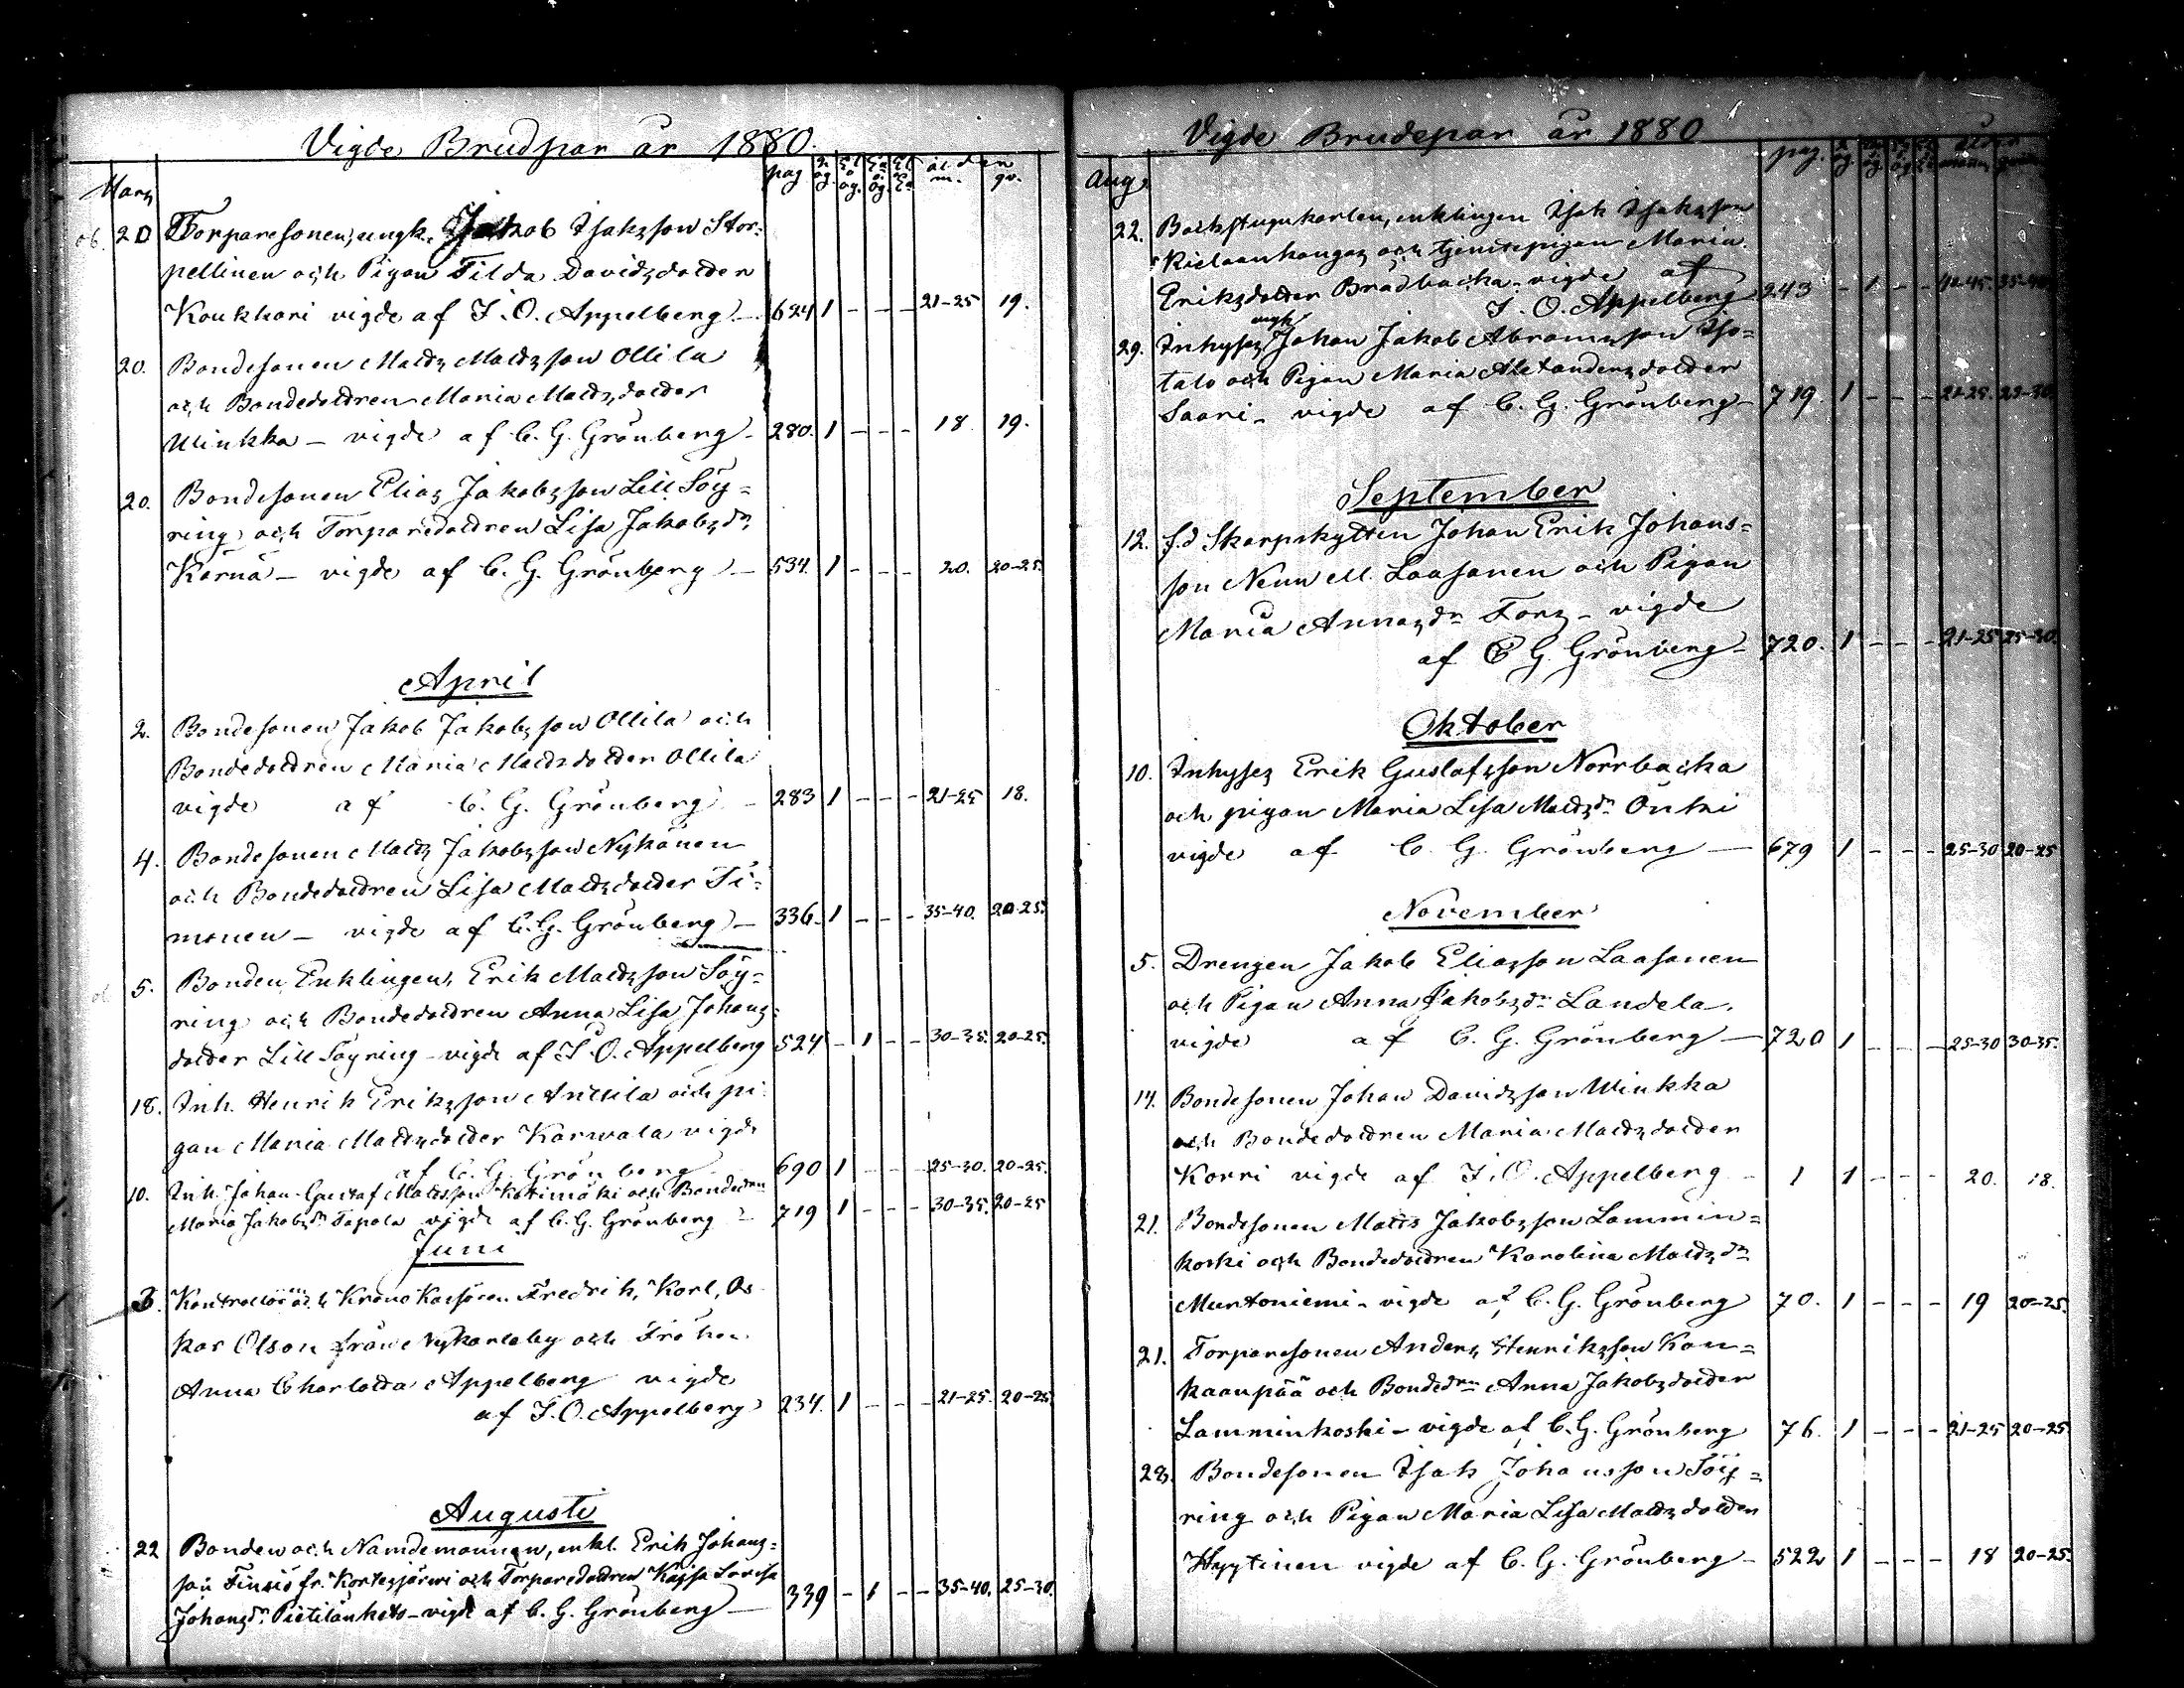 Vigde Brudpar år 1880.
Mars
pag åldern
m. qv.
20 Torparesonen, ungk. Jakob Isaksson Stor-
pellinen och Pigan Tilda Davidsdotter
Koukkari vigde af I. O. Appelberg — 624 1 - - - 21-25 19.
20. Bondesonen Matts Mattsson Ollila
och Bondedottren Maria Mattsdotter
Winkka — vigde af C. G. Grönberg - 280. 1 - - - 18 19.
20. Bondesonen Elias Jakobsson Lill Söy-
ring och Torparedottren Lisa Jakobsdr
Kärnä — vigde af C. G. Grönberg — 534. 1 - - - 20. 20-25.
April
2. Bondesonen Jakob Jakobsson Ollila och
Bondedottren Maria Mattsdotter Ollila
vigde af C. G. Grönberg - 283 1 - - - 21-25 18.
4. Bondesonen Matts Jakobsson Nykänen
och Bondedottren Lisa Mattsdotter Ti-
monen — vigde af C. G. Grönberg — 336. 1 - - - 35-40. 20-25.
5. Bonden, Enklingen, Erik Mattsson Söy-
ring och Bondedottren Anna Lisa Johans-
dotter Lill Söyring — vigde af I. O. Appelberg 524 - 1 - - 30-35. 20-25.
18. Inh. Henrik Eriksson Anttila och pi-
gan Maria Mattsdotter Karwala vigde
af C. G. Grönberg 690 1 - - - 25-30. 20-25.
10. Inh. Johan Gustaf Mattsson Kotimäki och Bondedren
Maria Jakobsdr Tapola vigde af C. G. Grönberg - 719 1 - - - 30-35. 20-25
Juni
3. Kontrollör och Krono Kassören Fredrik, Karl, Os-
kar Olson från Nykarleby och Fröken
Anna Charlotta Appelberg vigde
af I. O. Appelberg 234. 1 - - - 21-25. 20-25
Augusti
22 Bonden och Nämdemannen, enkl. Erik Johans-
son Finnis fr. Kortesjärwi och Torparedottren Kajsa Lovisa
Johansdr. Pietilänketo — vigde af C. G. Grönberg — 339 - 1 - - 35-40. 25-30.
Vigde Brudepar år 1880
Aug.
pag. ålder
22. Backstugukarlen, enklingen Isak Isaksson
Kielaankangas och tjenstepigan Maria
Eriksdotter Brädbacka - vigde af
I. O. Appelberg 243 - 1 - - 40-45. 35-40
ungk
29. Inhyses Johan Jakob Abramsson Iso-
talo och Pigan Maria Alexandersdotter
Saari - vigde af C. G. Grönberg - 719. 1 - - - 21-25. 25-30.
September
12. f.d Skarpskytten Johan Erik Johans-
son Nenn M. Laasanen och Pigan
Maria Annasdr Fors - vigde
af C G. Grönberg - 720. 1 - - - 21-25 25-30.
Oktober
10. Inhyses Erik Gustafsson Norrbacka
och pigan Maria Lisa Mattsdr Öntri
vigde af C. G. Grönberg — 679 1 - - - 25-30 20-25
November
5. Drengen Jakob Eliasson Laasanen
och Pigan Anna Jakobsdr Landela.
vigde af C. G. Grönberg — 720 1 - - - 25-30 30-35.
14. Bondesonen Johan Davidsson Winkka
och Bondedottren Maria Mattsdotter
Korri vigde af I. O. Appelberg - 1 1 - - - 20. 18.
21. Bondesonen Matts Jakobsson Lammin-
koski och Bondedottren Karolina Mattsdr
Murtoniemi - vigde af C. G. Grönberg 70. 1 - - - 19 20-25.
21. Torparesonen Anders Henriksson Kan-
kaanpää och Bondedren Anna Jakobsdotter
Lamminkoski - vigde af C. G. Grönberg 76. 1 - - - 21-25 20-25
28. Bondesonen Isak Johansson Söy-
ring och Pigan Maria Lisa Mattsdotter
Hyytinen vigde af C. G. Grönberg - 522 1 - - - 18 20-25.